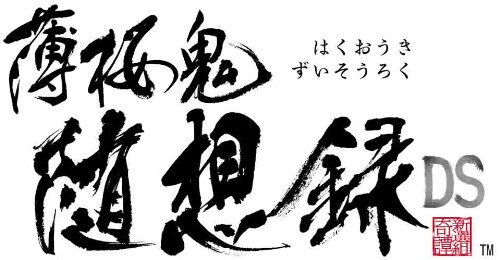 薄桜鬼
はくおうき
ずいそうろく
随想録 DS
新選組
奇譚
TM